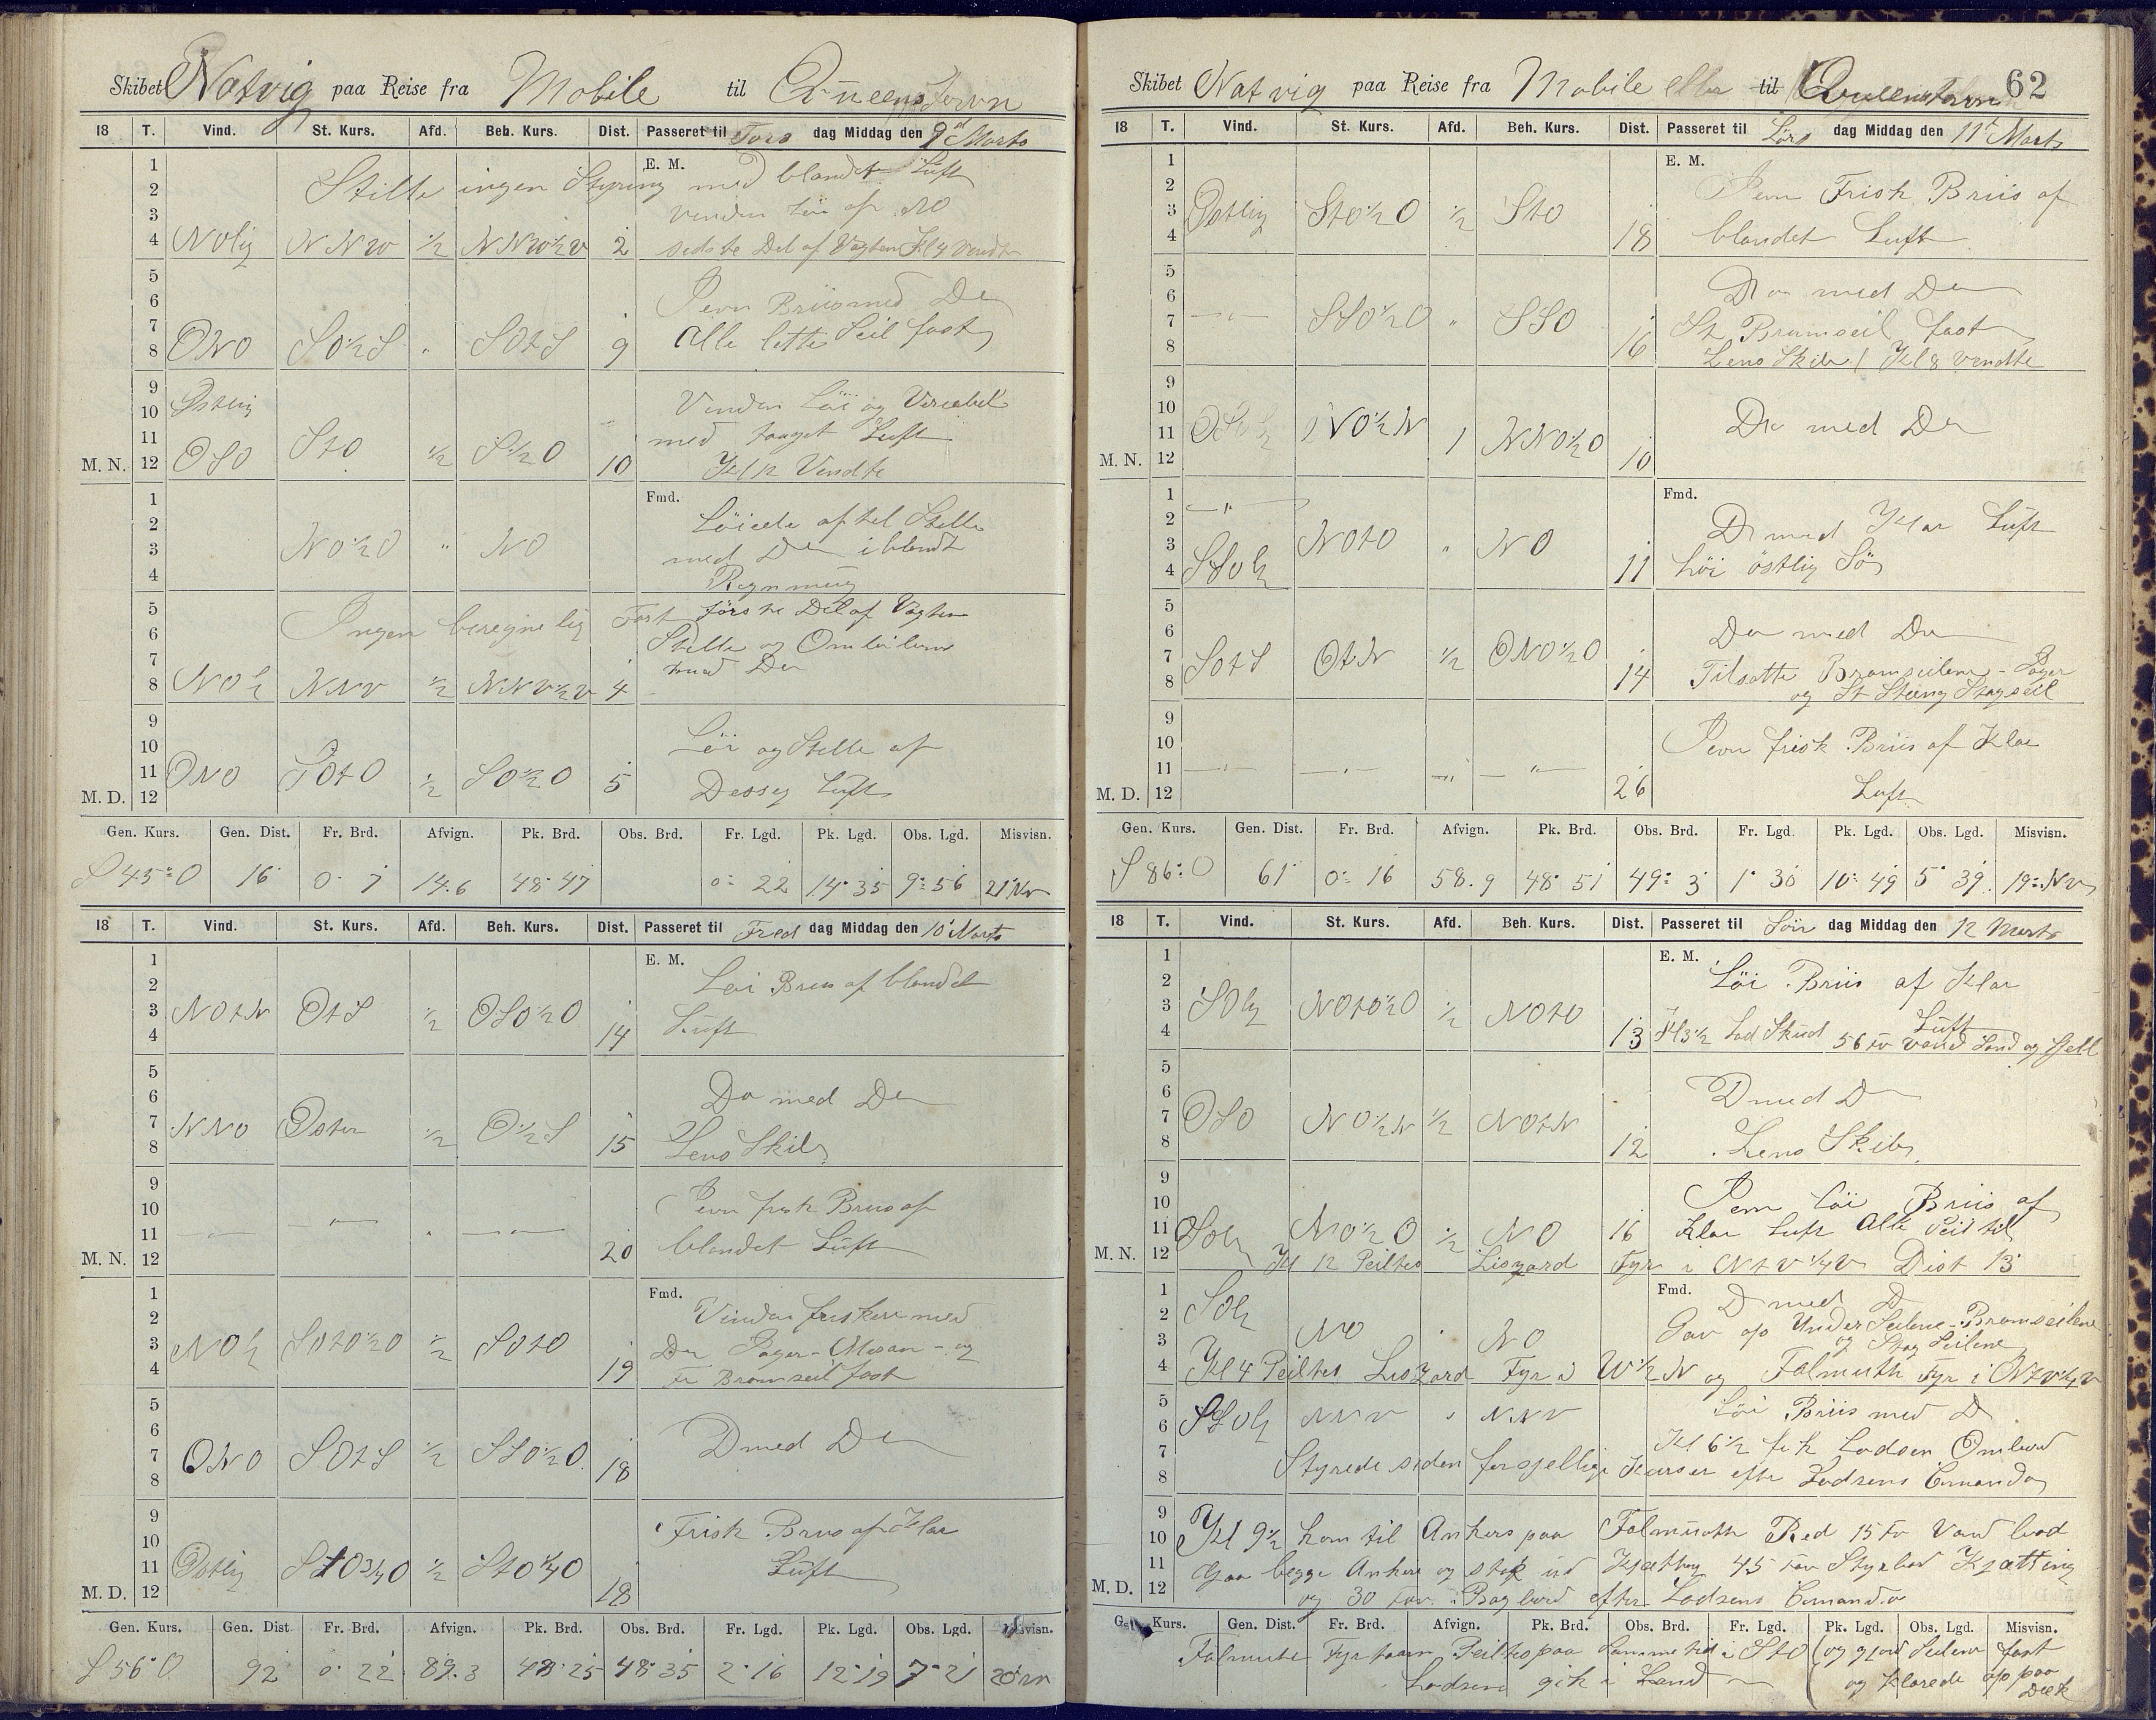 Skibet Natvig paa Reise fra Mobile til Queenstown
18 T. Vind. St. Kurs. Afd. Beh. Kurs. Dist. Passeret til Tors dag Middag den 9de Marts
E. M.
1
2 Stille ingen Styring med blandet Luft
3 Vinden Löi af NO
4 NOlig NNW ½ NNW½V 2 sidste Del af Vagten Kl 4 Vendte
5
6 Jevn Briis med Do
7 Alle lette Seil fast
8 ONO SO½S " SOtS 9
9
10 Østlig Vinden Löi og Variabel
11 med taaget Luft
M. N. 12 OSO StO ½ S½O 10 Kl 12 Vendte
Fmd.
1
2 Löiede af til Stille
3 NO½O " NO med Do iblandt
4 Regnning
5 Ingen beregnelig Fart förste Del af Vagten
6 Stille og Omlöbende
7 med Do
8 NOlig NNV ½ NNV½V 4
9
10 Löi og Stille af
11 ONO SOtO ½ SO½O 5 Dessig Luft
M. D. 12
Gen. Kurs. Gen. Dist. Fr. Brd. Afvign. Pk. Brd. Obs. Brd. Fr. Lgd. Pk. Lgd. Obs. Lgd. Misvisn.
S 45° O 16 0° 7 14.6 48° 47 0° 22 14° 35 9° 56 21° Nv
18 T. Vind. St. Kurs. Afd. Beh. Kurs. Dist. Passeret til Fred dag Middag den 10' Marts
E. M.
1
2 Löi Briis af blandet
3 NOtN OtS ½ OSO½O 14 Luft
4
5
6 Do med Do
7 NNO Øster ½ O½S 15 Lens Skib
8
9
10 Jevn frisk Briis af
11 blandet Luft
M. N. 12 20
Fmd.
1
2 Vinden friskere med
3 NOlig SOtO½O ½ SOtO 19 Do Jager - Mesan - og
4 Fr Bramseil fast
5
6
7 ONO SOtS ½ SSO½O 18 D med Do
8
9
10 Frisk Briis af Klar
11 Østlig StO¾O ½ StO¼O 18 Luft
M. D. 12
Gen. Kurs. Gen. Dist Fr. Brd. Afvign. Pk. Brd. Obs. Brd. Fr. Lgd. Pk. Lgd. Obs. Lgd. Misvisn.
S 56° O 92 0° 22 89.3 48° 25 48° 35 2° 16 12° 19 7° 21
Skibet Natvig paa Reise fra Mobile eller til Queenstown 62
18 T. Vind. St. Kurs. Afd. Beh. Kurs. Dist. Passeret til Lörs dag Middag den 11te Marts
E. M.
1
2 Jevn Frisk Briis af
3 Østlig StO½O ½ StO 18 blandet Luft
4
5
6 Do med Do
7 SSO½O " SSO 16 St Bramseil fast
8 Lens Skib / Kl 8 Vendte
9
10 Do med Do
11 NO½N 1 NNO½O 10
M. N. 12
Fmd.
1
2 D med Klar Luft
3 NOtO " NO
4 SSOlig 11 höi östlig Sö
5
6 Do med Do
7 SOtS OtN ½ ONO½O 14 Tilsatte Bramseilene - Jager
8 og St Steing Stagseil
9
10 Jevn frisk Briis af Klar
11
M. D. 12 26 Luft
Gen. Kurs. Gen. Dist. Fr. Brd. Afvign. Pk. Brd. Obs. Brd. Fr. Lgd. Pk. Lgd. Obs. Lgd. Misvisn.
S 86° O 61 0° 16 58.9 48° 51 49° 3 1° 30 10° 49 5° 39 19° Nv
18 T. Vind. St. Kurs. Afd. Beh. Kurs. Dist. Passeret til Sön dag Middag den 12 Marts
E. M.
1
2 Löi Briis af Klar
3 SOlig NOtO½O ½ NOtO Luft
4 13 Kl 3½ Lod Skud 56 fv Vand Sand og Sjell
5
6 D med D
7 OSO NO½N ½ NOtN
8 12 Lens Skib
9
10 Jevn Löi Briis af
11 SOlig NO½O ½ NO 16 Klar Luft Alle Seil til
M. N. 12 Kl 12 Peiltes Liszard Fyr i NtV¼V Dist 13
Fmd.
1 D med D
2 SOlig Gav op UnderSeilene - Bramseilene
3 NO NO og Stag Seilene
4 Kl 4 Peiltes Liszard Fyr i W½N og Falmuth Fyr i NtV¼V
5 Löi Briis med D
6 SSOlig NNV NNV Kl 6½ fik Lodsen Ombord
7 Styrede siden forsjellige Kurser efter Lodsens Comando
8
9
10 Kl 9½ kom til Ankers paa Falmuth Red 15 fv Vand lod
11 Gaa begge Ankere og stak ud Kjætting 45 fav Styrbor Kjætting
M. D. 12 og 30 fav. i Bagbord efter Lodsens Comando
Gen. Kurs. Gen. Dist. Fr. Brd. Afvign. Pk. Brd. Obs. Brd. Fr. Lgd. Pk. Lgd. Obs. Lgd. Misvisn.
Falmuth Fyrtaarn Peiltes paa samme tid i StO og gjord Seilene fast
Lodsen gik i Land og Klarede op paa
Dæk